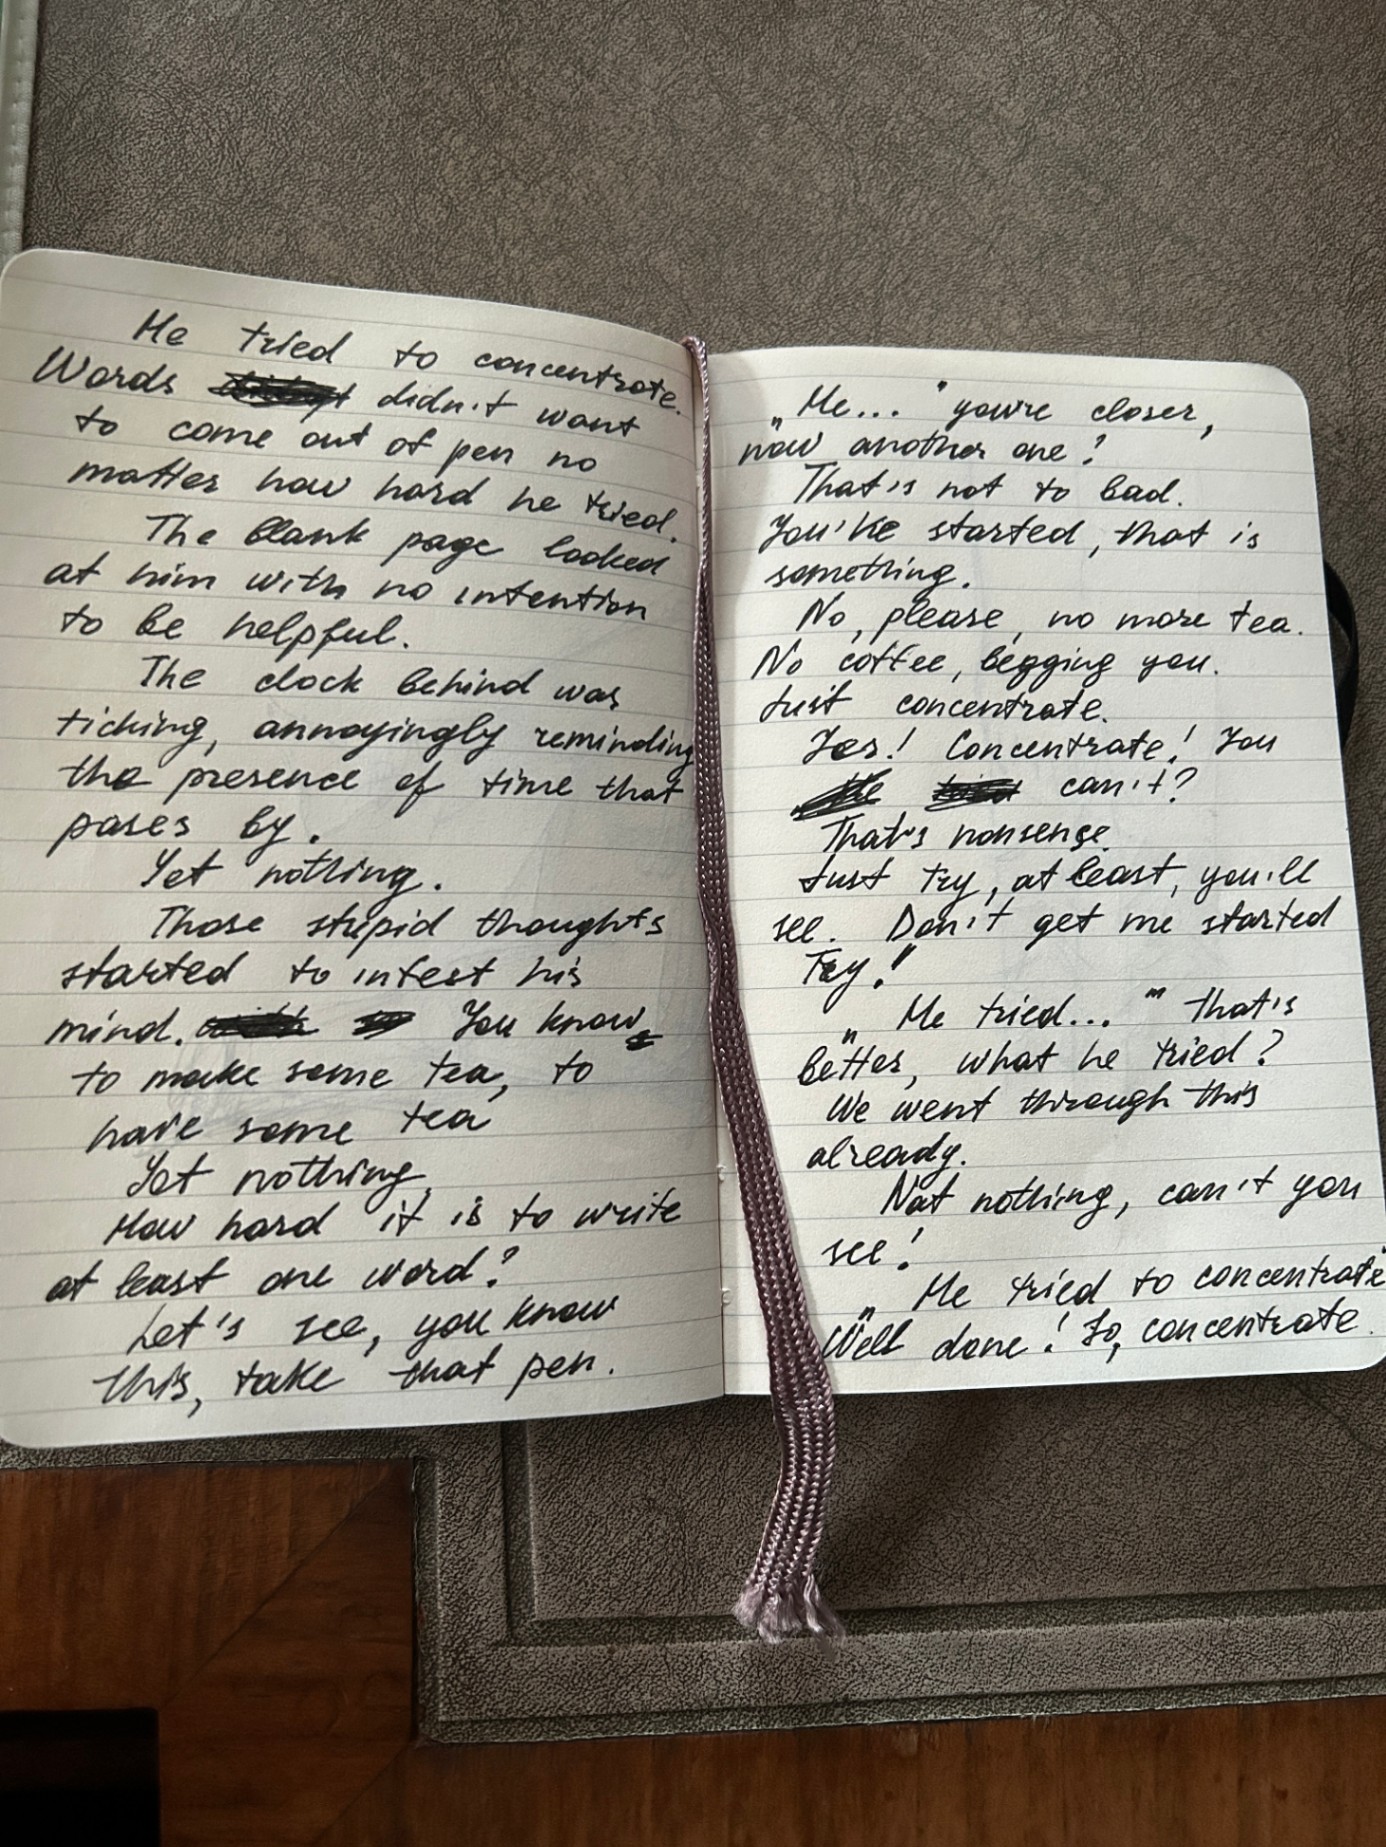 He tried to concentrate.
Words didn't want
to come out of pen no
matter how hard he tried.
The blank page looked
at him with no intention
to be helpful.
The clock behind was
ticking, annoyingly reminding
the presence of time that
pases by.
Yet nothing.
Those stupid thoughts
started to infest his
mind. You know,
to make some tea, to
have some tea
Yet nothing.
How hard it is to write
at least one word?
Let's see, you know
this, take that pen.
„He... " you're closer,
now another one?
That's not to bad.
You've started, that is
something.
No, please, no more tea.
No coffee, begging you.
Just concentrate.
Yes! Concentrate! You
can't?
That's nonsense.
Just try, at least, you'll
see. Don't get me started
Try!"
„He tried... " That's
better, what he tried?
We went through this
already.
Not nothing, can't you
see!
„He tried to concentrate
Well done! So, concentrate.